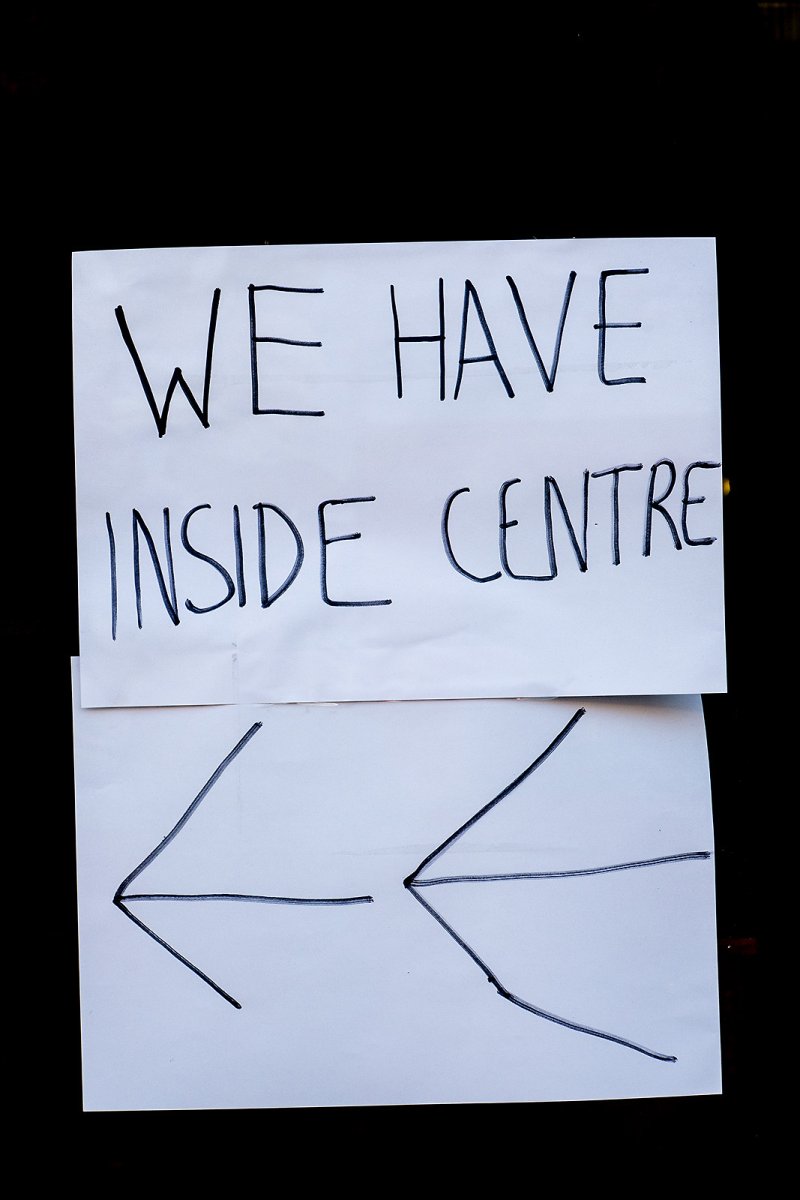 WE HAVE
INSIDE CENTRE